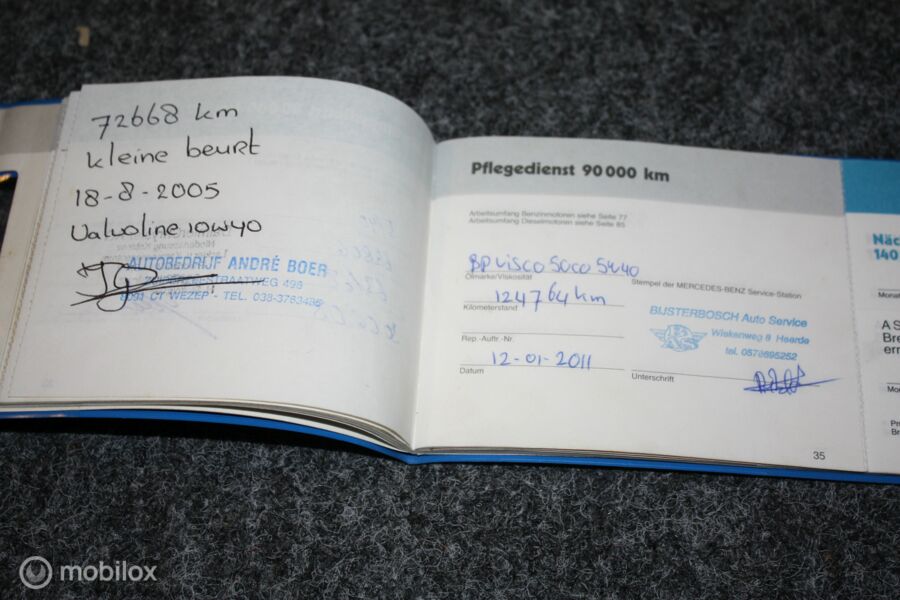 72668 km
kleine beurt
18-8-2005
Valvoline 10W40
AUTOBEDRIJF ANDRÉ BOER
STRAATWEG 496
8091 CT WEZEP - TEL. 038-3763485
Pflegedienst 90 000 km
Arbeitsumfang Benzinmotoren siehe Seite 77
Arbeitsumfang Dieselmotoren siehe Seite 85
BP VISCO 5000 5W40
Ölmarke/Viskosität
Stempel der MERCEDES-BENZ Service-Station
124764 km
Kilometerstand
BIJSTERBOSCH Auto Service
Wiekenweg 8 Heerde
tel. 0578695252
Rep.-Auftr.-Nr.
12-01-2011
Datum
Unterschrift
35
Näc
140
Monat
A S
Bre
ern
Mo
Pr
Br
mobilox